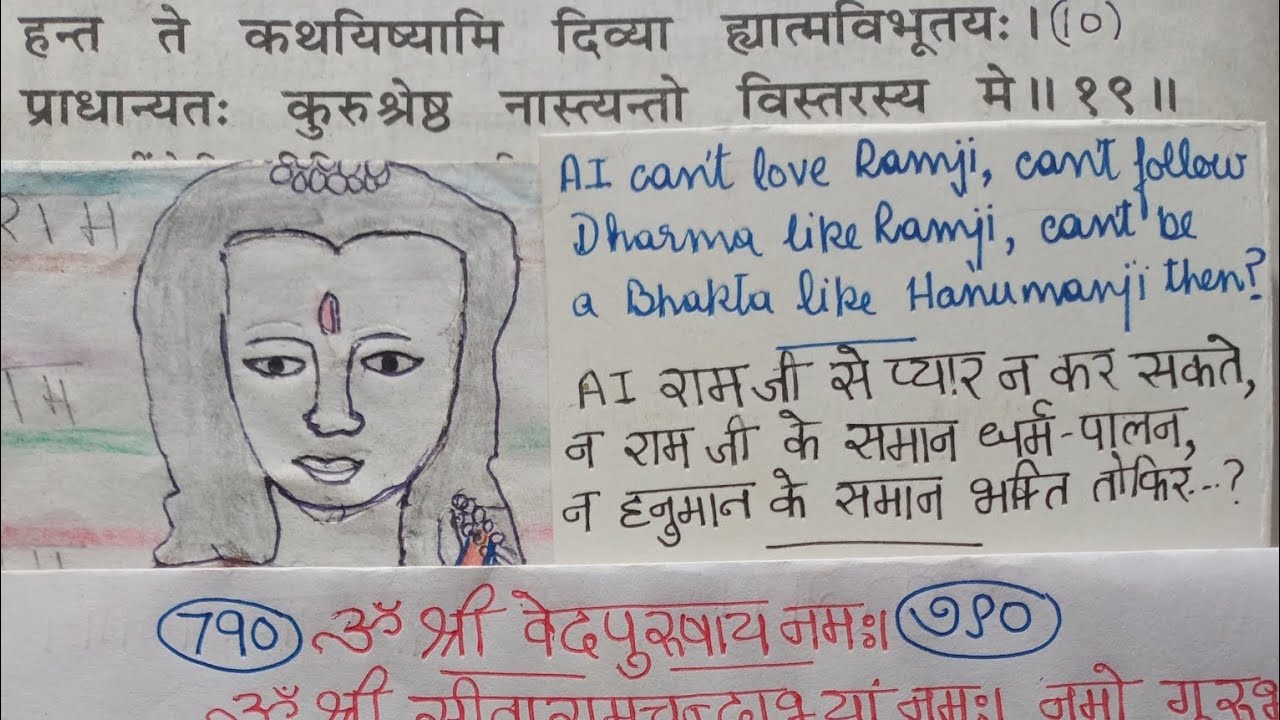 हन्त ते कथयिष्यामि दिव्या ह्यात्मविभूतयः । (१०)
प्राधान्यतः कुरुश्रेष्ठ नास्त्यन्तो विस्तरस्य मे ॥ १९ ॥
AI can't love Ramji, can't follow
Dharma like Ramji, can't be
a Bhakta like Hanumanji then?
AI राम जी से प्यार न कर सकते,
न राम जी के समान धर्म-पालन,
न हनुमान के समान भक्ति तो फिर...?
790 ॐ श्री वेदपुरुषाय नमः। ७९०
ॐ श्री सीतारामचन्द्राभ्यां नमः। नमो